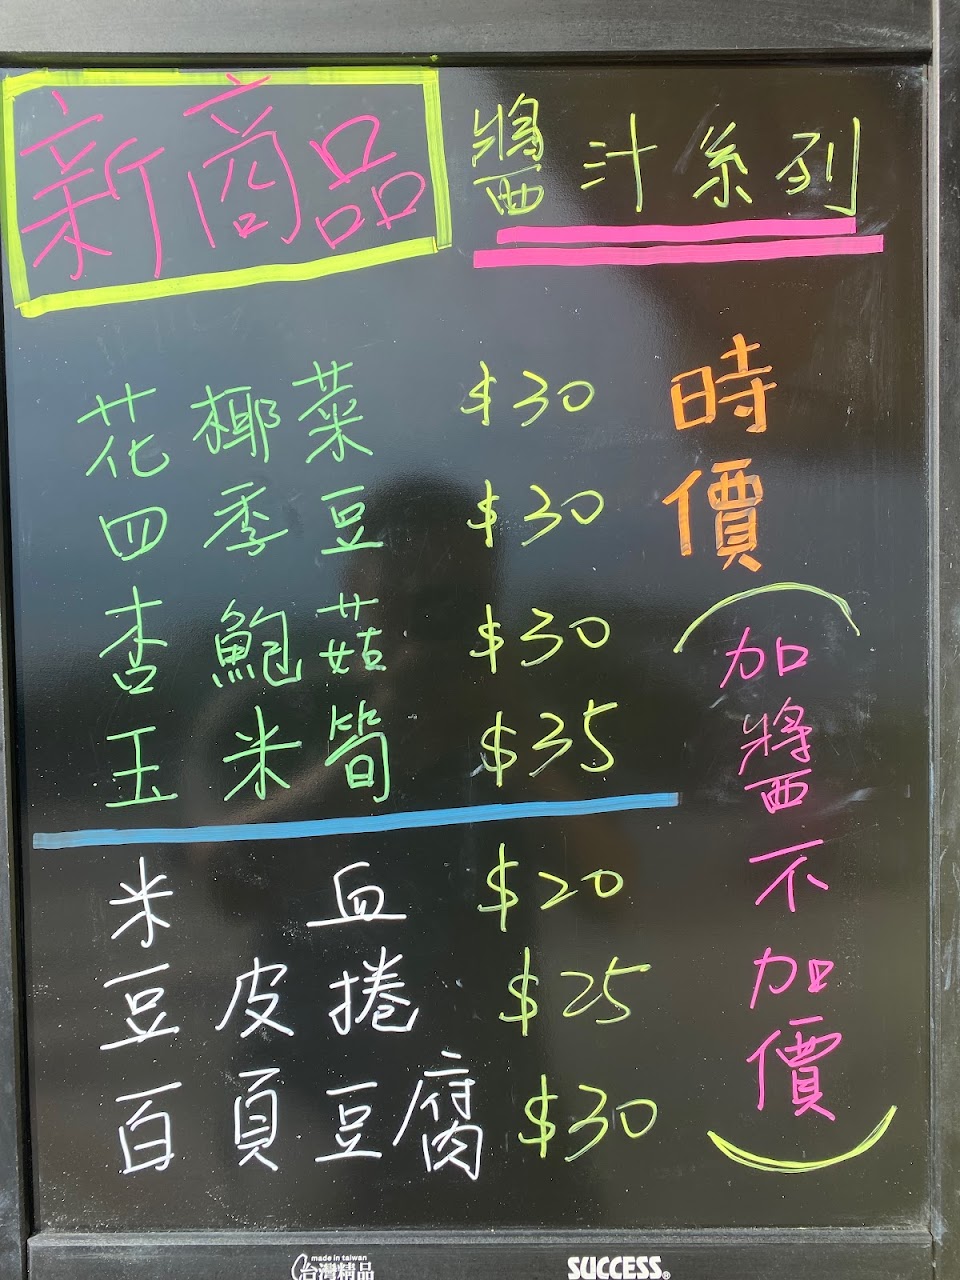 新商品
醬汁系列
花椰菜 $30
四季豆 $30
杏鮑菇 $30
玉米筍 $35
時價
(加醬不加價)
米血 $20
豆皮捲 $25
百頁豆腐 $30
made in taiwan
台灣精品
SUCCESS®